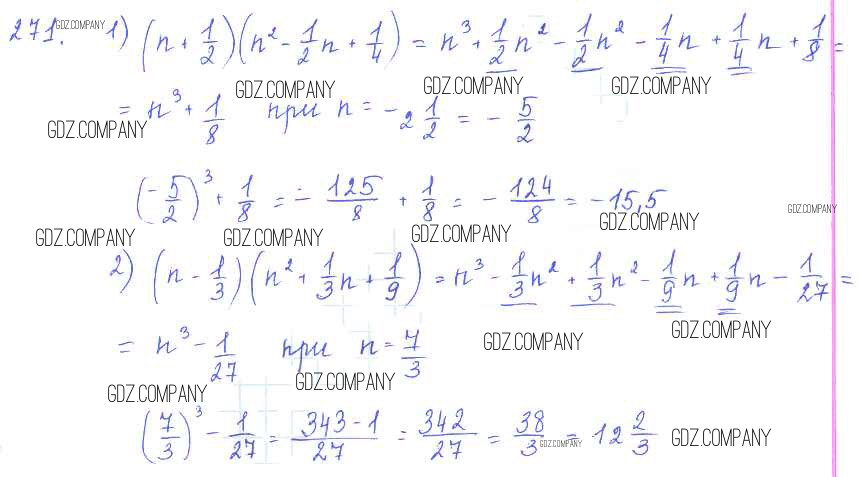 271. 1) (n + 1/2)(n² - 1/2 n + 1/4) = n³ + 1/2 n² - 1/2 n² - 1/4 n + 1/4 n + 1/8 =
GDZ.COMPANY
= n³ + 1/8 при n = -2 1/2 = - 5/2
GDZ.COMPANY GDZ.COMPANY GDZ.COMPANY
GDZ.COMPANY
(-5/2)³ + 1/8 = - 125/8 + 1/8 = - 124/8 = -15,5
GDZ.COMPANY GDZ.COMPANY GDZ.COMPANY GDZ.COMPANY GDZ.COMPANY
2) (n - 1/3)(n² + 1/3 n + 1/9) = n³ - 1/3 n² + 1/3 n² - 1/9 n + 1/9 n - 1/27 =
= n³ - 1/27 при n = 7/3
GDZ.COMPANY GDZ.COMPANY
GDZ.COMPANY GDZ.COMPANY
(7/3)³ - 1/27 = 343-1/27 = 342/27 = 38/3 = 12 2/3
GDZ.COMPANY GDZ.COMPANY